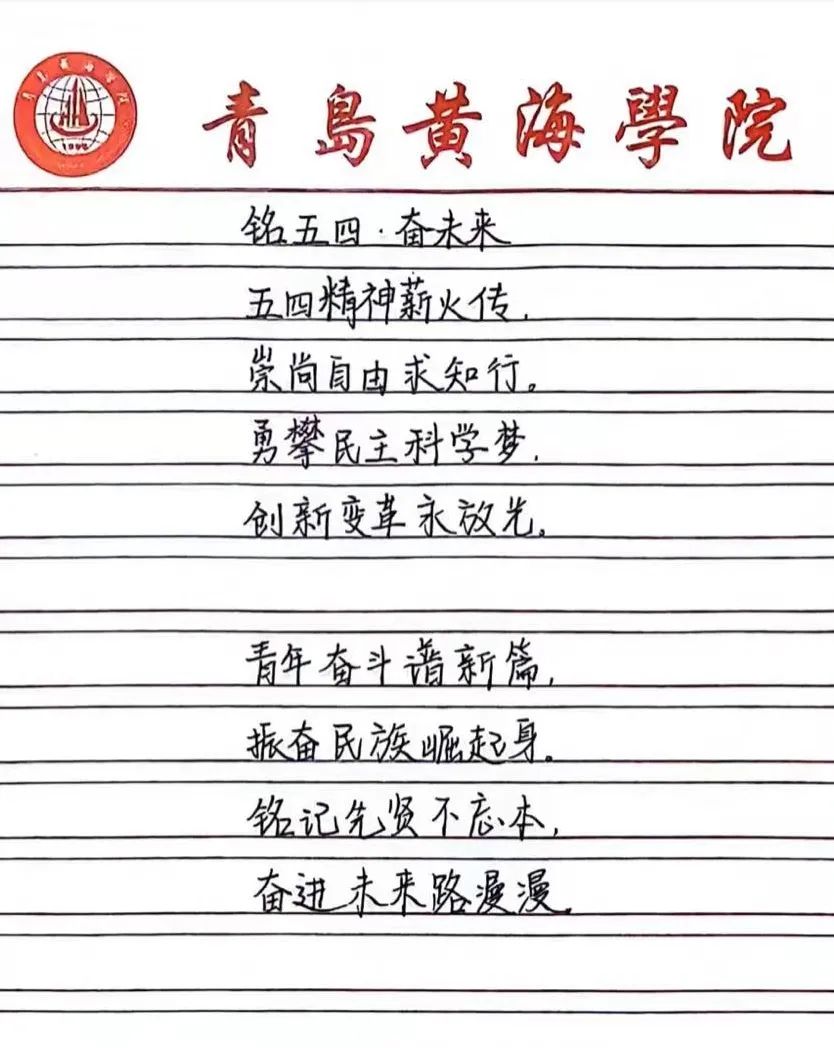 青島黄海學院
铭五四·奋未来
五四精神薪火传,
崇尚自由求知行。
勇攀民主科学梦,
创新变革永放光。
青年奋斗谱新篇,
振奋民族崛起身。
铭记先贤不忘本,
奋进未来路漫漫。